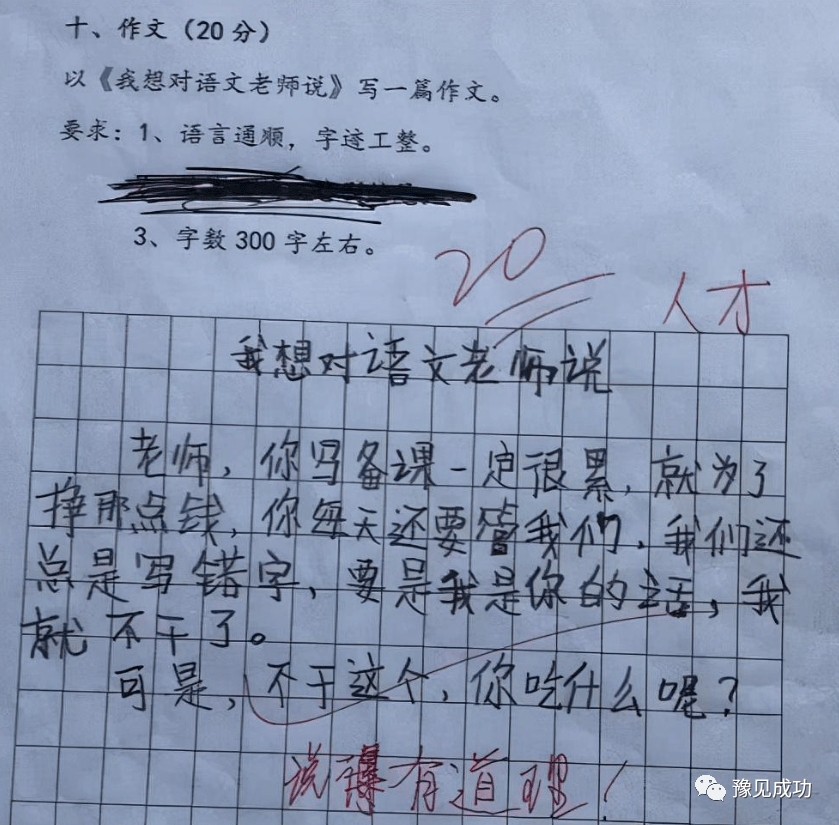 十、作文（20分）
以《我想对语文老师说》写一篇作文。
要求：1、语言通顺，字迹工整。
3、字数300字左右。
20
人才
我想对语文老师说
老师，你写备课一定很累，就为了
挣那点钱，你每天还要管我们，我们还
总是写错字，要是我是你的话，我
就不干了。
可是，不干这个，你吃什么呢？
说得有道理！
豫见成功